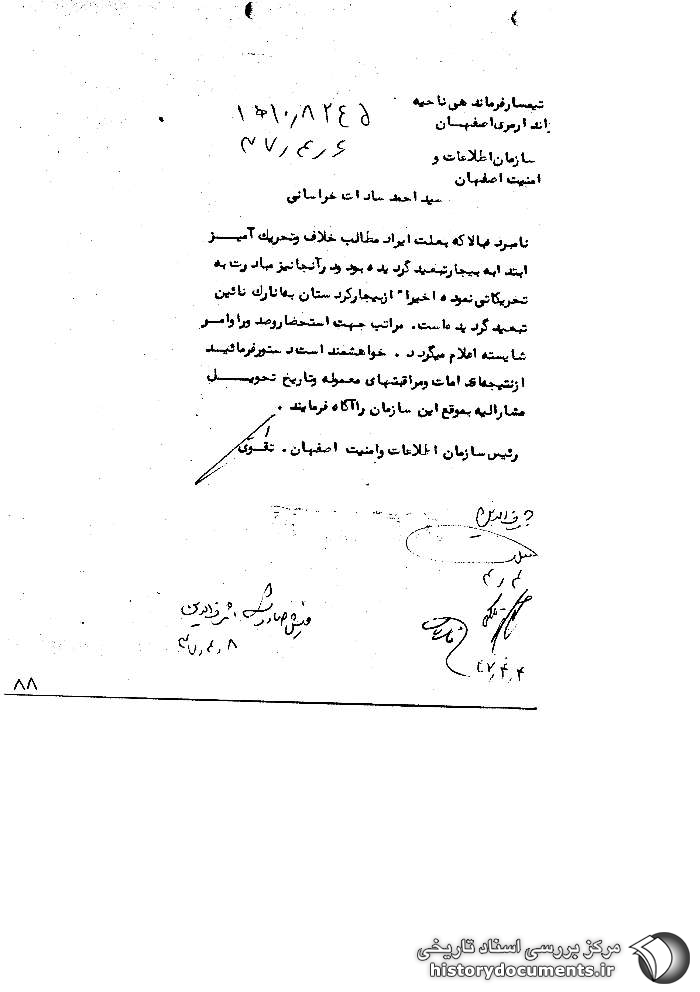 تیمسار فرماندهی ناحیه
ژاندارمری اصفهان
۱۵۱۰٫۸۲٤۵
۴۷٫۴٫۶
سازمان اطلاعات و
امنیت اصفهان
سید احمد سادات خراسانی
نامبرده بالا که بعلت ایراد مطالب خلاف و تحریک آمیز
ابتدا به بیجار تبعید گردیده بود و در آنجا نیز مبادرت به
تحریکاتی نموده اخیراً از بیجار کردستان به انارک نائین
تبعید گردیده است. مراتب جهت استحضار و صدور اوامر
شایسته اعلام میگردد. خواهشمند است دستور فرمائید
از نتیجه اقدامات و مراقبتهای معموله و تاریخ تحویل
مشارالیه بموقع این سازمان را آگاه فرمایند.
رئیس سازمان اطلاعات و امنیت اصفهان. تقوی
شرف الدین
۴٫۴
۴۷٫۴٫۴
شرف الدین
۴۷٫۴٫۸
۸۸
مرکز بررسی اسناد تاریخی
historydocuments.ir